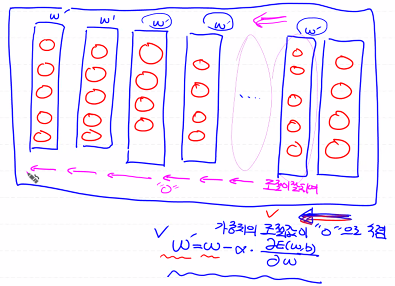 w' w' w' w' w'
....
"0" 조절이 잘되며
✓ 가중치의 조절값이 "0"으로 수렴
✓ w' = w - α · ∂E(w,b) / ∂w